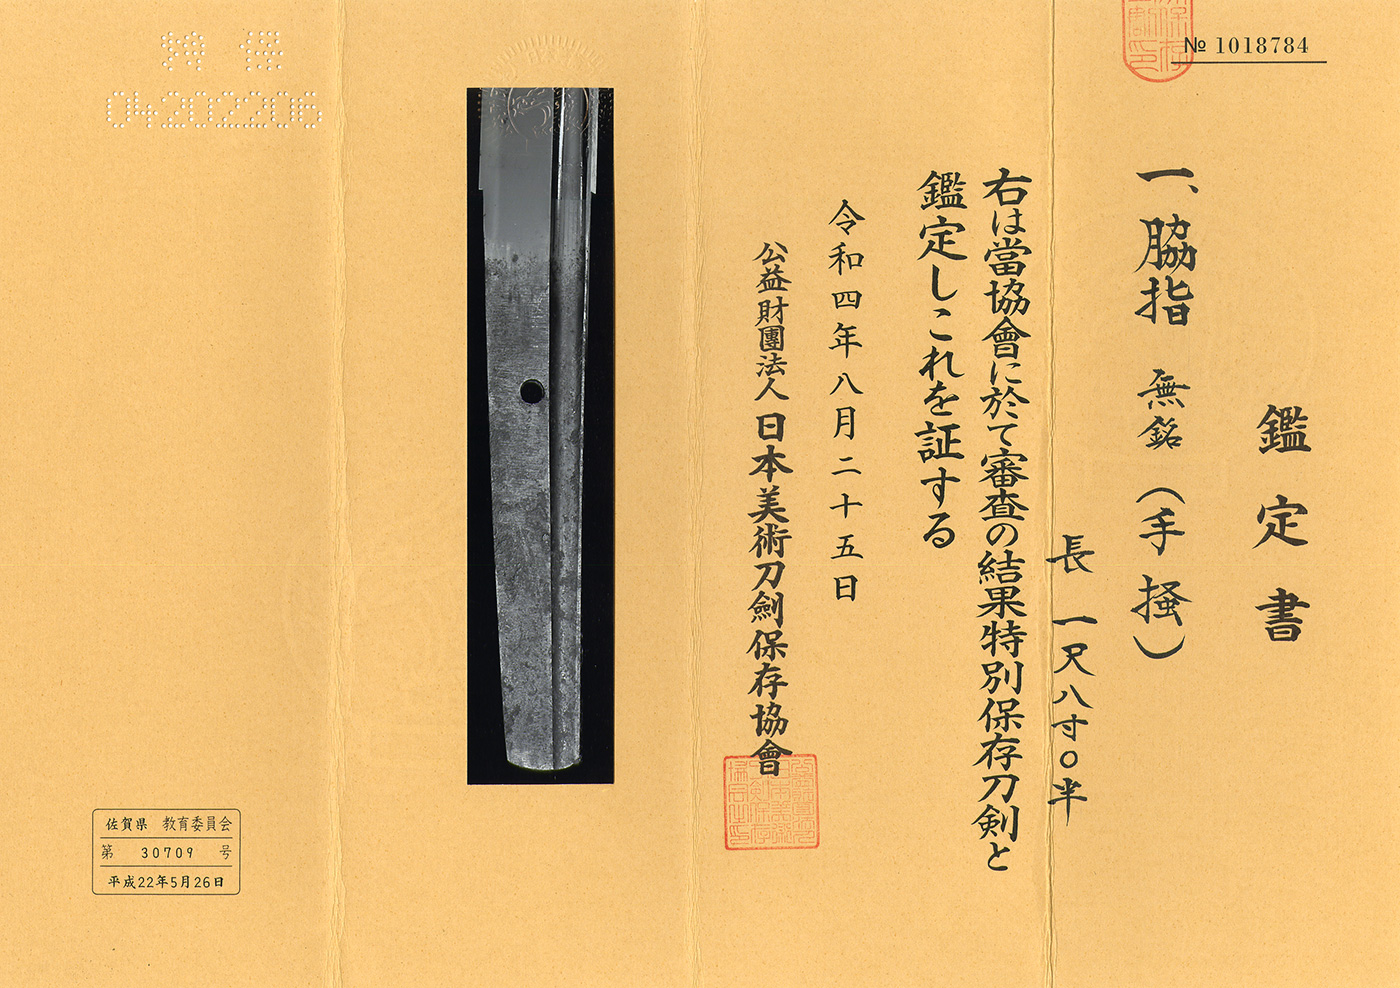 № 1018784
鑑定書
一、脇指 無銘（手掻）
長 一尺八寸〇半
右は當協會に於て審査の結果特別保存刀剣と
鑑定しこれを証する
令和四年八月二十五日
公益財團法人 日本美術刀劍保存協會
特保
04202206
佐賀県 教育委員会
第 30709 号
平成22年5月26日